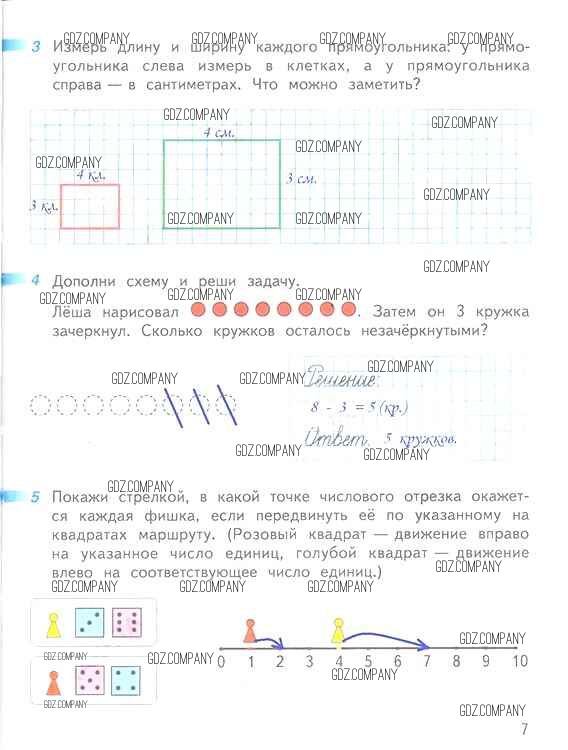 GDZ.COMPANY GDZ.COMPANY GDZ.COMPANY GDZ.COMPANY
3 Измерь длину и ширину каждого прямоугольника: у прямо-
угольника слева измерь в клетках, а у прямоугольника
справа — в сантиметрах. Что можно заметить?
GDZ.COMPANY GDZ.COMPANY
4 см.
GDZ.COMPANY GDZ.COMPANY
4 кл. 3 см.
GDZ.COMPANY
3 кл.
GDZ.COMPANY GDZ.COMPANY
GDZ.COMPANY
4 Дополни схему и реши задачу.
GDZ.COMPANY GDZ.COMPANY GDZ.COMPANY
Лёша нарисовал . Затем он 3 кружка
зачеркнул. Сколько кружков осталось незачёркнутыми?
GDZ.COMPANY
GDZ.COMPANY GDZ.COMPANY Решение:
8 - 3 = 5 (кр.)
Ответ. 5 кружков.
GDZ.COMPANY GDZ.COMPANY
GDZ.COMPANY
5 Покажи стрелкой, в какой точке числового отрезка окажет-
ся каждая фишка, если передвинуть её по указанному на
квадратах маршруту. (Розовый квадрат — движение вправо
на указанное число единиц, голубой квадрат — движение
влево на соответствующее число единиц.)
GDZ.COMPANY
GDZ.COMPANY GDZ.COMPANY GDZ.COMPANY
GDZ.COMPANY
GDZ.COMPANY GDZ.COMPANY
0 1 2 3 4 5 6 7 8 9 10
GDZ.COMPANY
GDZ.COMPANY GDZ.COMPANY
7